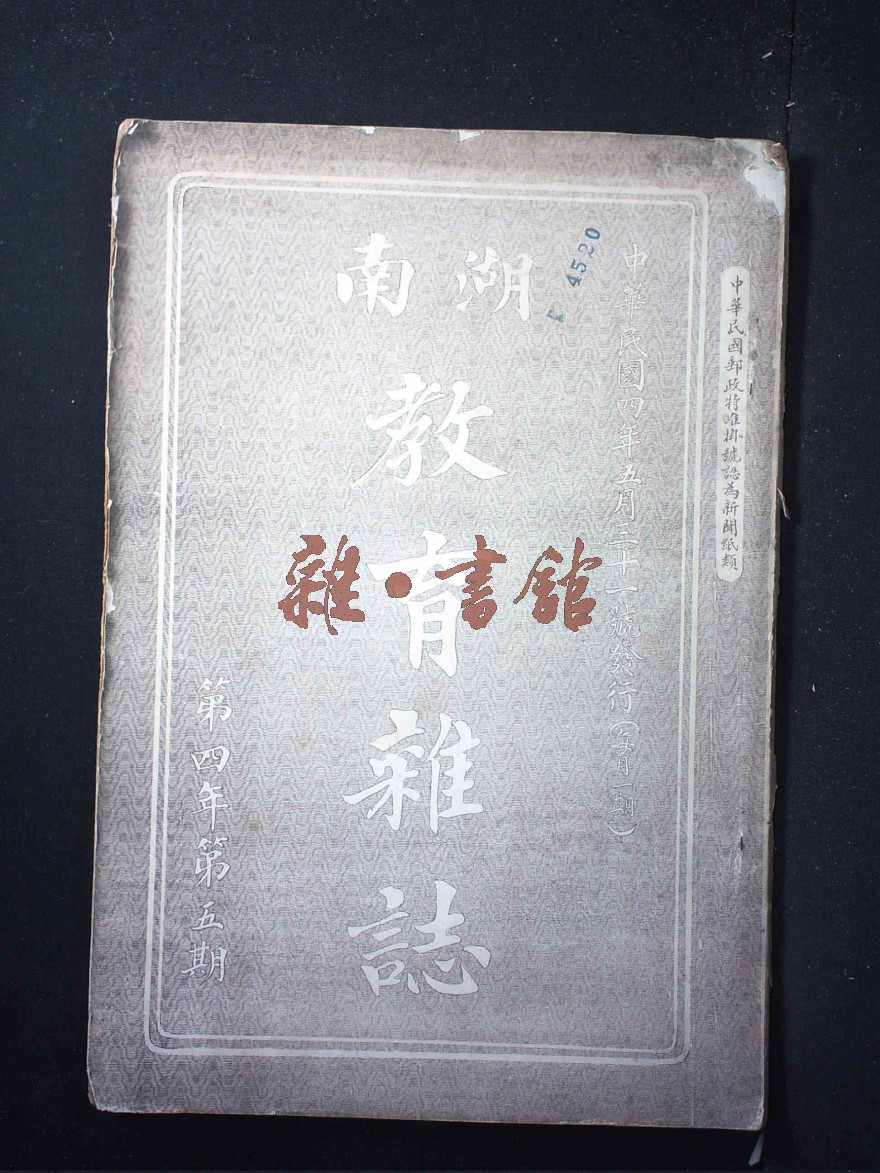 中華民國郵政特准掛號認為新聞紙類
中華民國四年五月三十一號發行(每月一冊)
湖南
教育雜誌
第四年第五期
4520
雜·書館